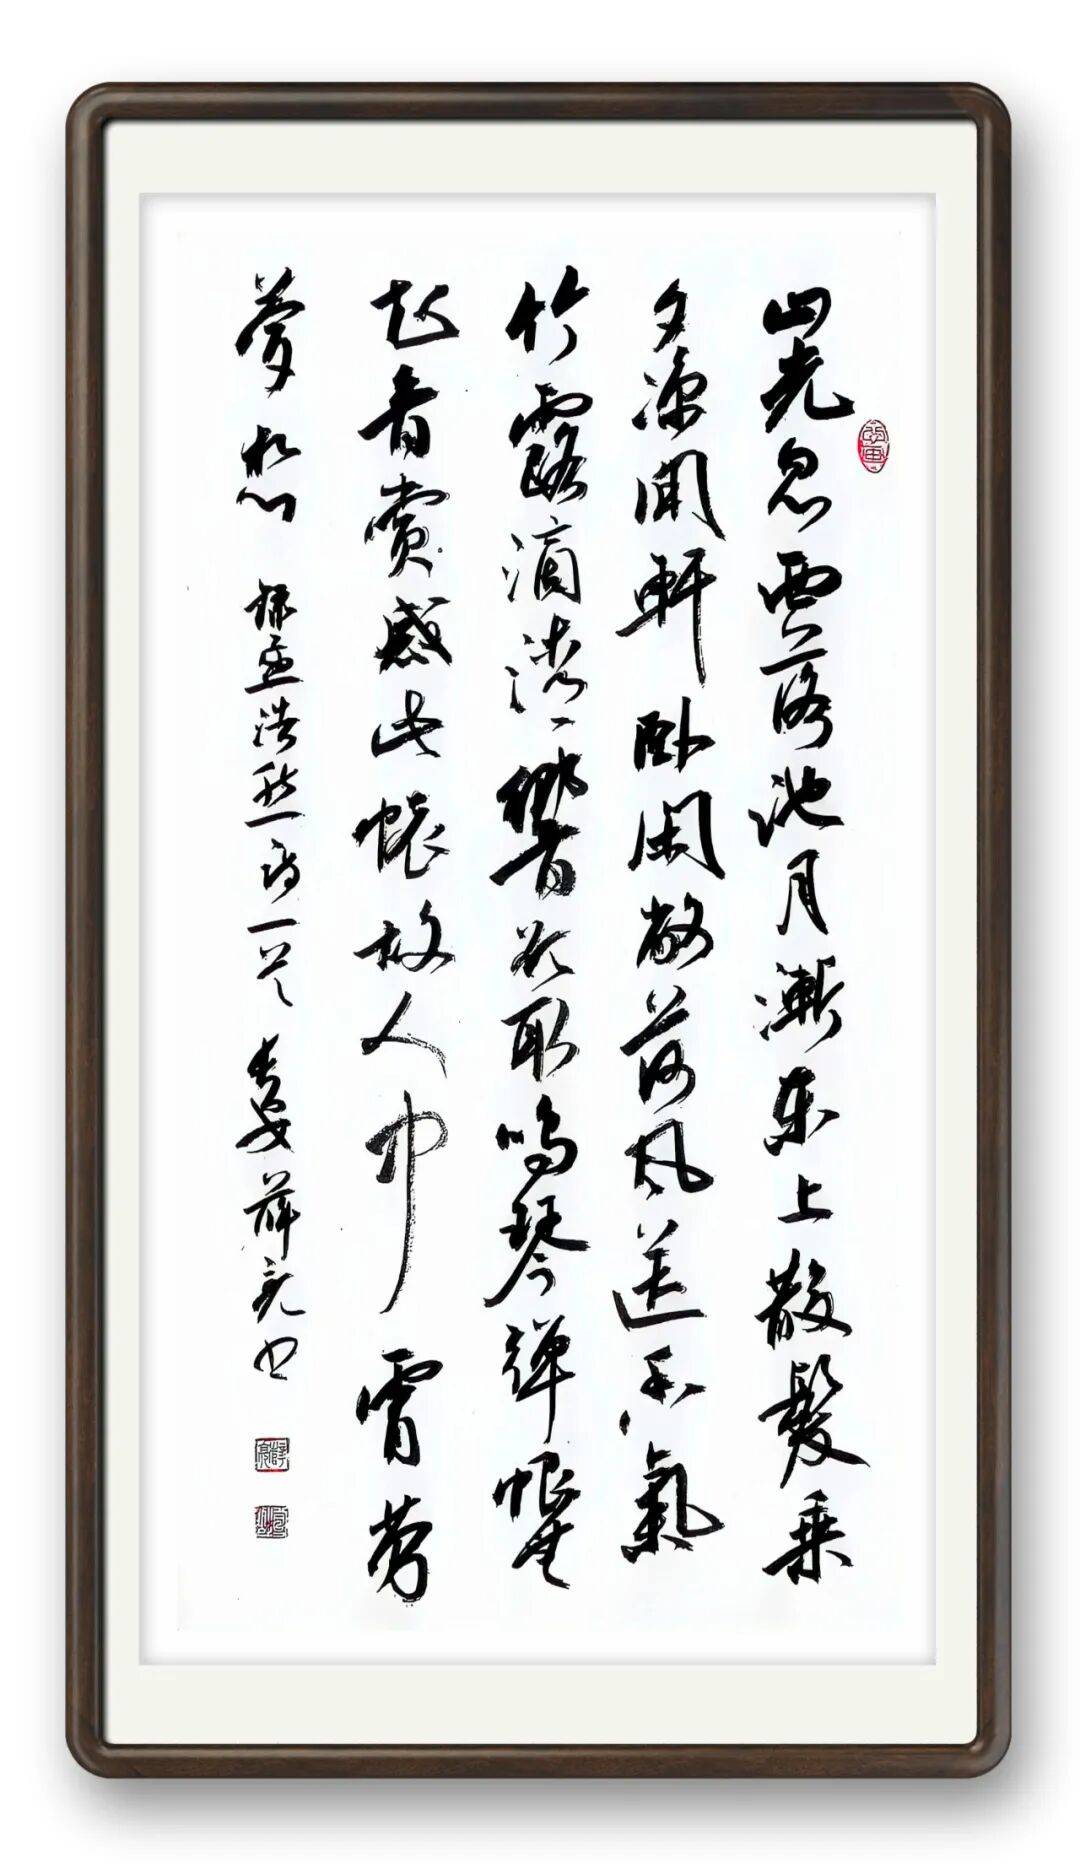 山光忽西落池月漸东上散髮乘
夕凉開軒卧閑敞荷风送香氣
竹露滴清響欲取鳴琴彈恨無
知音賞感此懷故人中霄勞
夢想 錄孟浩然詩一首 長安薛亮书